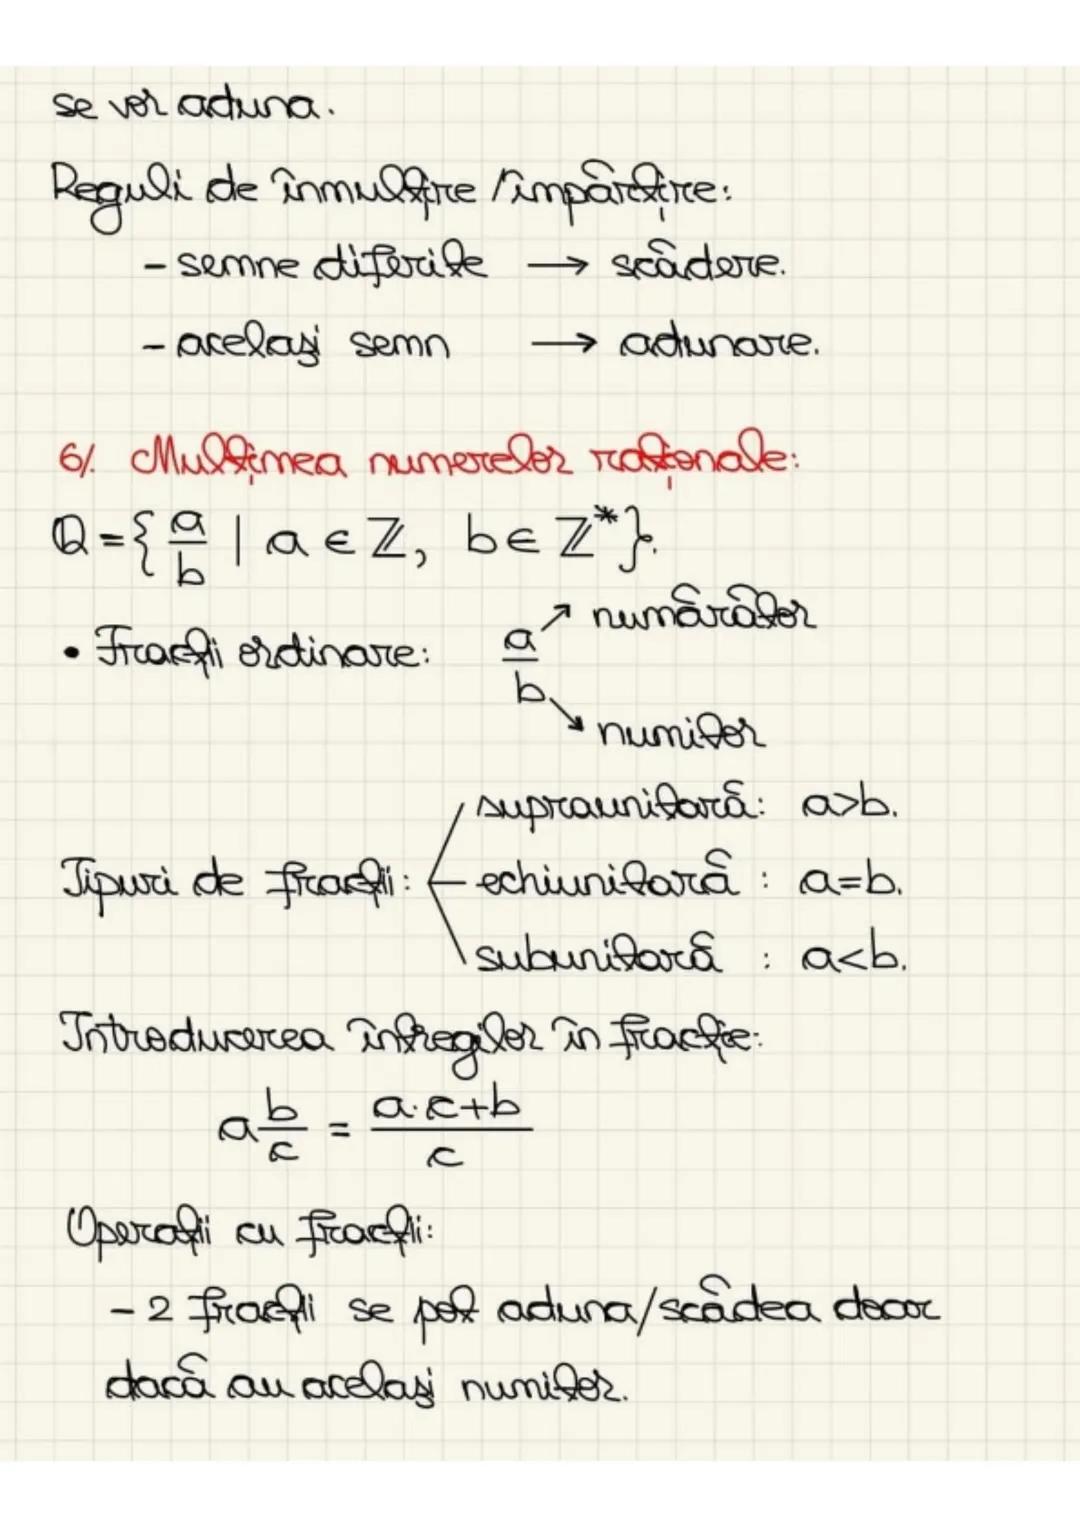 se vor aduna.
Reguli de înmulțire / împărțire:
- semne diferite → scădere.
- același semn → adunare.
6/. Mulțimea numerelor raționale:
Q = { a/b | a ∈ ℤ, b ∈ ℤ* }.
• Fracții ordinare: a/b ↗ numărător
↘ numitor
supraunitară: a>b.
Tipuri de fracții: echiunitară : a=b.
subunitară : a<b.
Introducerea întregilor în fracție:
a b/c = a·c+b/c
Operații cu fracții:
- 2 fracții se pot aduna/scădea doar
dacă au același numitor.